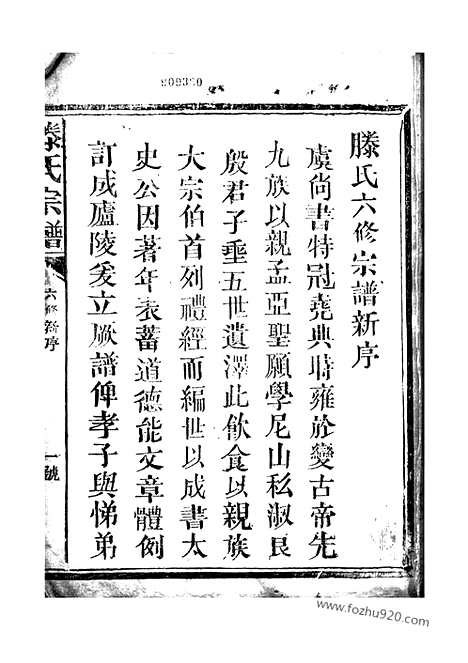 滕氏六修宗譜新序
虞尚書特冠堯典時雍於變古帝先
九族以親孟亞聖願學尼山私淑艮
殷君子垂五世遺澤此飲食以親族
大宗伯首列禮經而編世以成書太
史公因著年表蓄道德能文章體例
訂成廬陵爰立厥譜俾孝子與悌弟
滕氏宗譜
六修新序
一號
909360
www.fozhu920.com